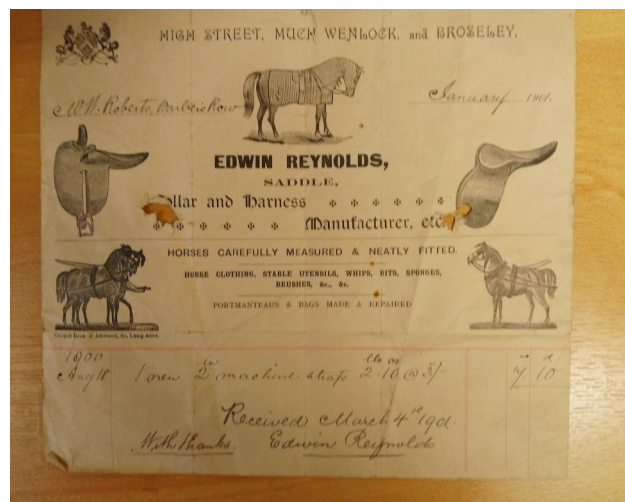 HIGH STREET, MUCH WENLOCK, and BROSELEY.
January 1901.
Mr W. Roberts, Barbers Row
EDWIN REYNOLDS,
SADDLE,
ollar and Harness
Manufacturer, etc
HORSES CAREFULLY MEASURED & NEATLY FITTED.
HORSE CLOTHING, STABLE UTENSILS, WHIPS, BITS, SPONGES,
BRUSHES, &c., &c.
PORTMANTEAUS & BAGS MADE & REPAIRED
1900 in lbs oz s d
Aug 18 1 new 2 machine straps 2.10 @ 3/ 7. 10
Received March 4th 190.
With thanks. Edwin Reynolds